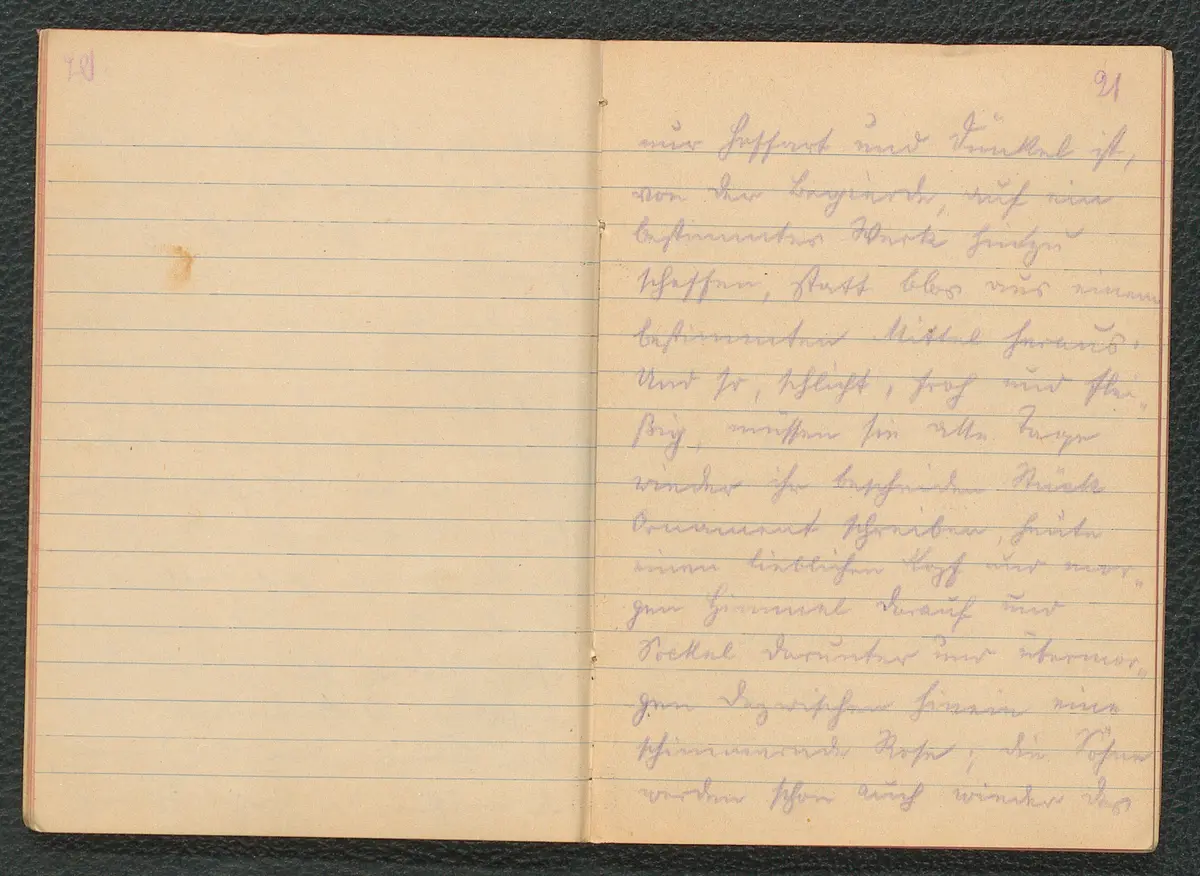 21
nur Hoffart und Dünkel ist,
von der Begierde, auf ein
bestimmtes Werk hinzu
schaffen, statt blos aus einem
bestimmten Mittel heraus.
Und so, schlicht, froh und flei„
ßig, müssen sie alle Tage
wieder ihr bescheiden Stück
Ornament schreiben, heute
einen lieblichen Kopf und mor„
gen Himmel darauf und
Sockel darunter und übermor„
gen dazwischen hinein eine
schimmernde Rose; die Söhne
werden schon auch wieder das